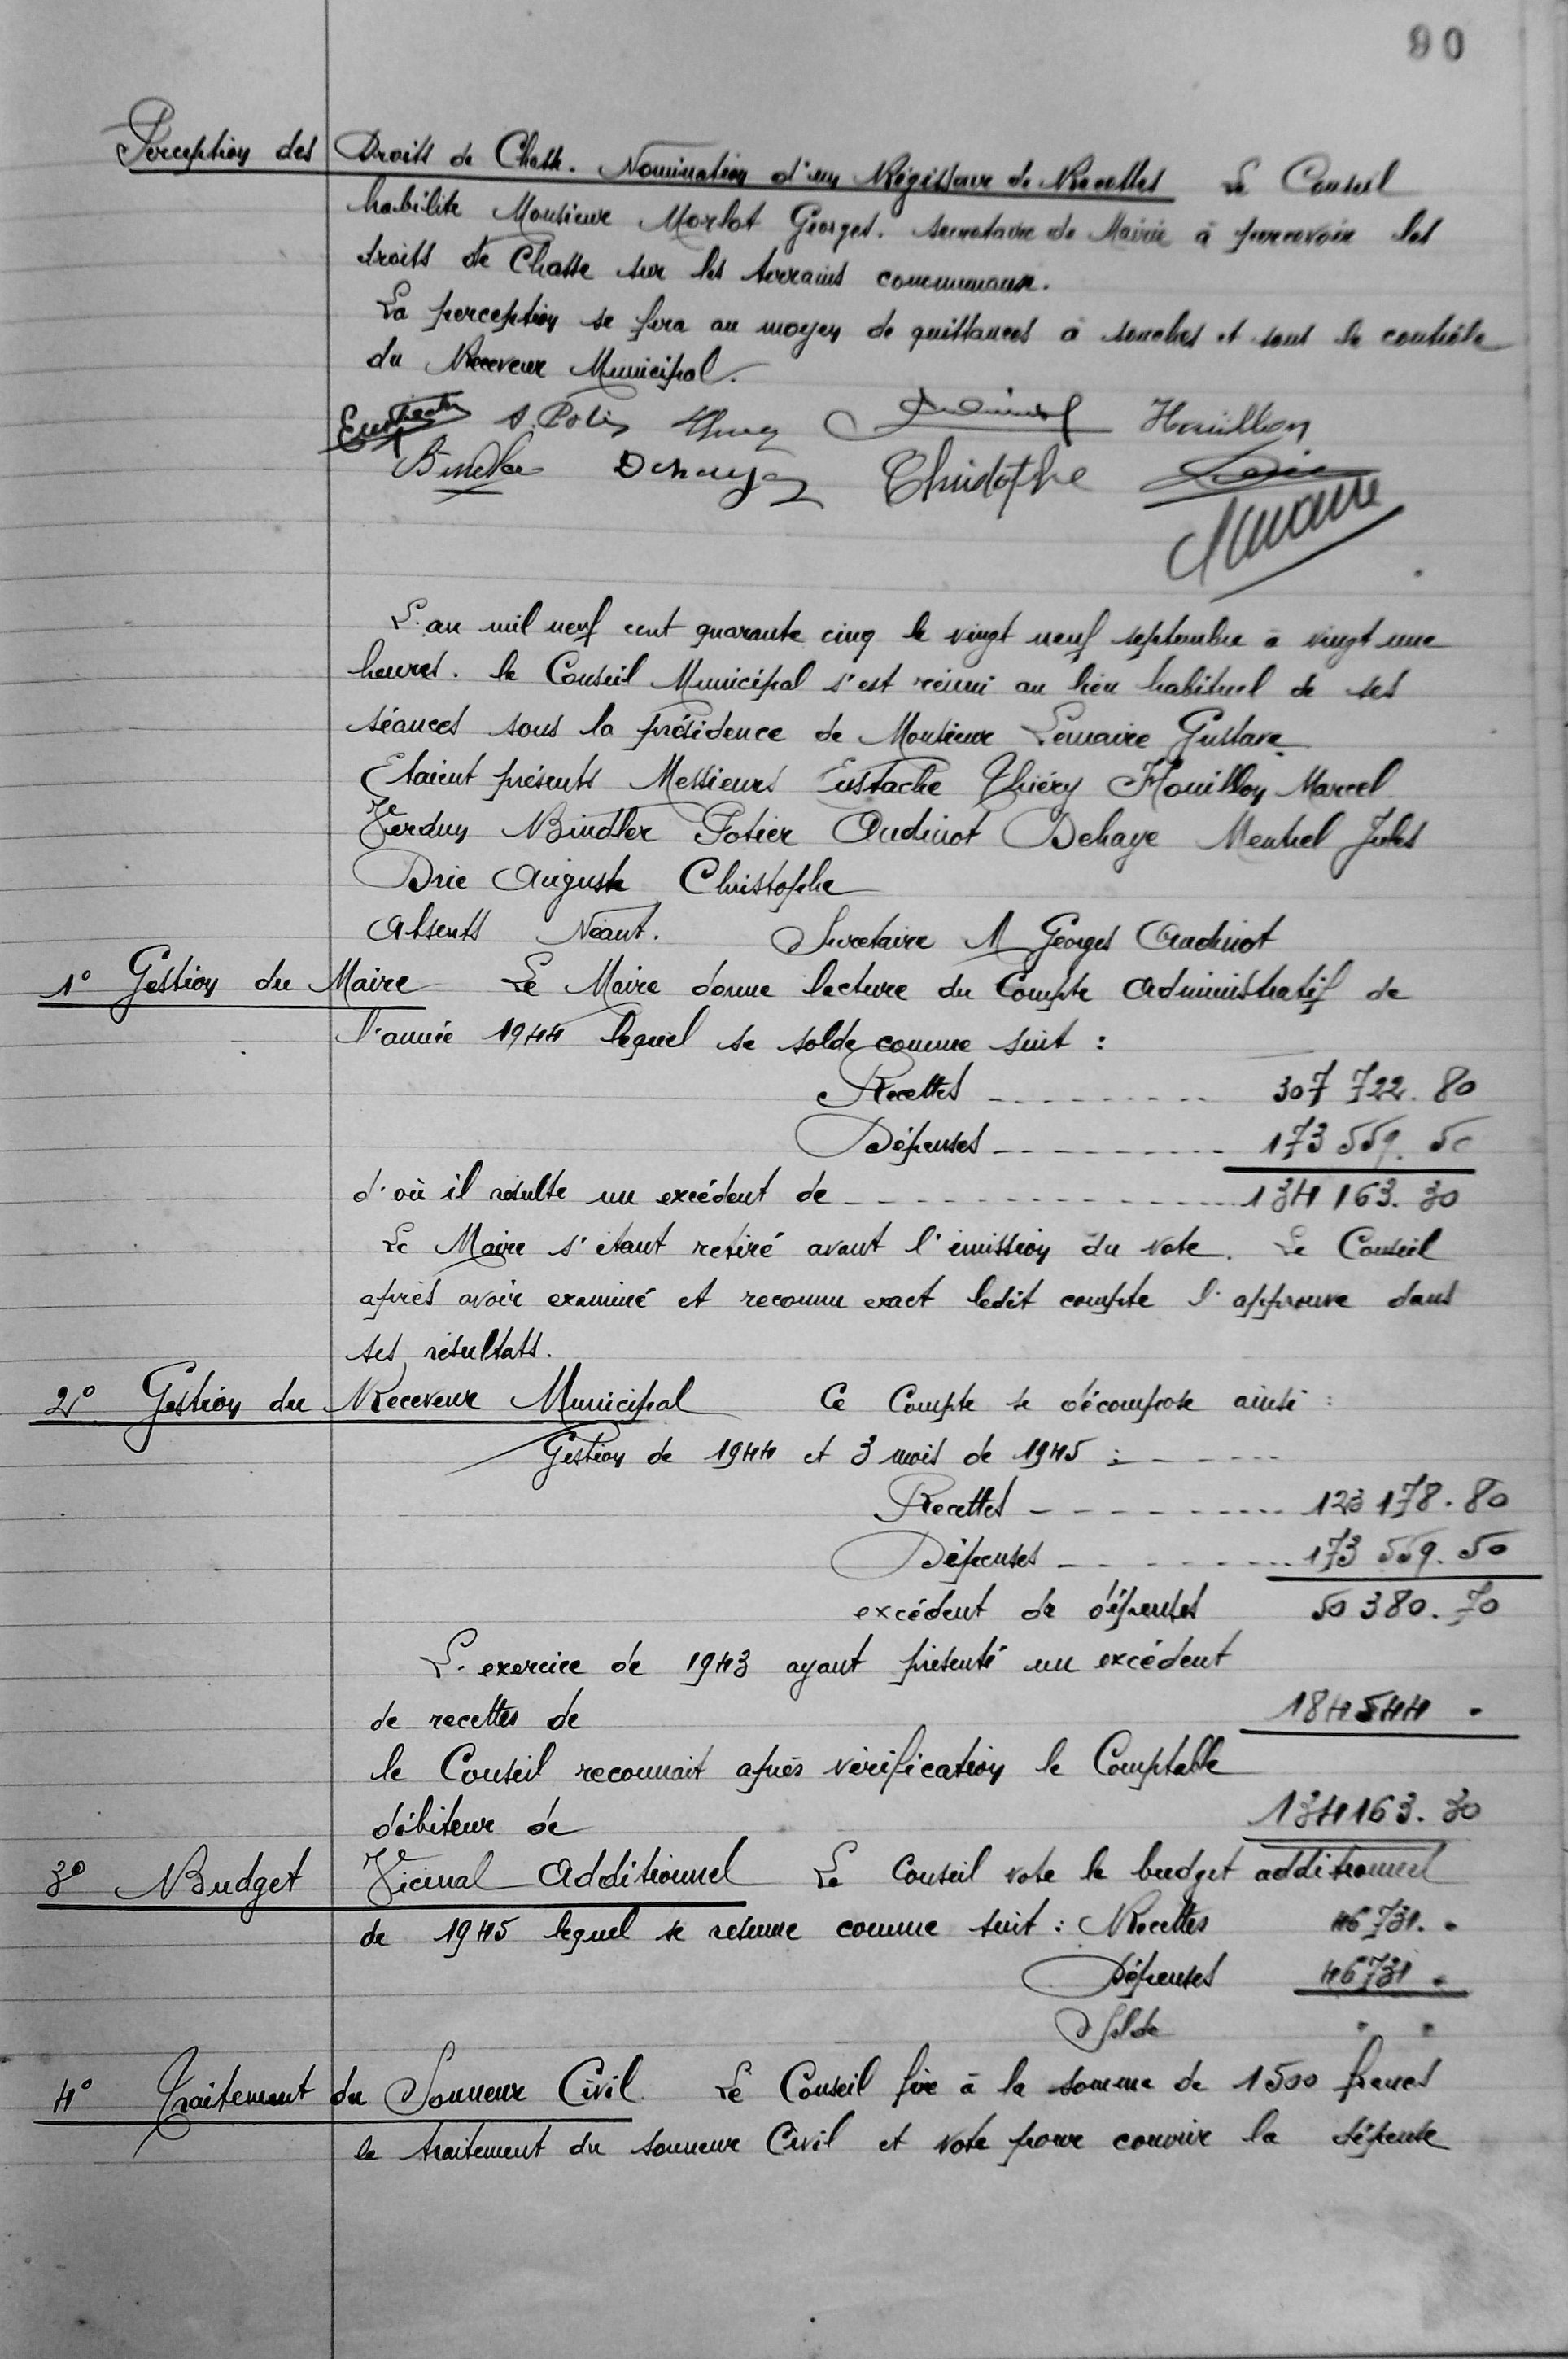 90
Perception des Droits de Chasse. Nomination d'un Régisseur de Recettes Le Conseil
habilite Monsieur Morlot Georges. secrétaire de Mairie à percevoir les
droits de Chasse sur les terrains communaux.
La perception se fera au moyen de quittances à souches et sous le contrôle
du Receveur Municipal.
Eustache A. Potier Thiery Audinot Houillon
Bindler Dehaye Christophe Drie
Lemaire
L'an mil neuf cent quarante cinq le vingt neuf septembre à vingt une
heures. le Conseil Municipal s'est réuni au lieu habituel de ses
séances sous la présidence de Monsieur Lemaire Gustave
Etaient présents Messieurs Eustache Thiéry Houillon Marcel
Verdun Bindler Potier Audinot Dehaye Mentrel Jules
Drie Auguste Christophe
Absents Néant. Secretaire M Georges Audinot
1° Gestion du Maire Le Maire donne lecture du Compte Administratif de
l'année 1944 lequel se solde comme suit :
Recettes --------- 307 722. 80
Dépenses --------- 173 559. 50
d'où il résulte un excédent de --------- 134 163. 30
Le Maire s'étant retiré avant l'émission du vote. Le Conseil
après avoir examiné et reconnu exact ledit compte l'approuve dans
ses résultats.
2° Gestion du Receveur Municipal Ce Compte se décompose ainsi :
Gestion de 1944 et 3 mois de 1945 : -----
Recettes --------- 123 178. 80
Dépenses --------- 173 559. 50
excédent de dépenses 50 380. 70
L'exercice de 1943 ayant présenté un excédent
de recettes de 184544 .
le Conseil reconnait après vérification le Comptable
débiteur de 134163. 30
3° Budget Vicinal Additionnel Le Conseil vote le budget additionnel
de 1945 lequel se résume comme suit : Recettes 46 731. .
Dépenses 46731 .
Solde " "
4° Traitement du Sonneur Civil. Le Conseil fixe à la somme de 1500 francs
le traitement du sonneur Civil et vote pour couvrir la dépense